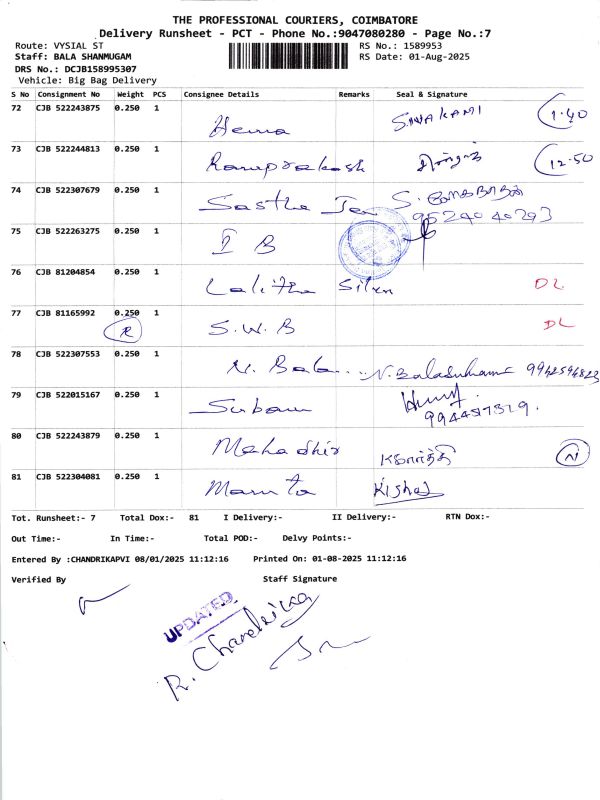 THE PROFESSIONAL COURIERS, COIMBATORE
Delivery Runsheet - PCT - Phone No.:9047080280 - Page No.:7
Route: VYSIAL ST
Staff: BALA SHANMUGAM
DRS No.: DCJB158995307
Vehicle: Big Bag Delivery
RS No.: 1589953
RS Date: 01-Aug-2025
S No Consignment No Weight PCS Consignee Details Remarks Seal & Signature
72 CJB 522243875 0.250 1 Hema SIVAKAMI 1.40
73 CJB 522244813 0.250 1 Ramprakash 12.50
74 CJB 522307679 0.250 1 Sastha S.
9524040293
75 CJB 522263275 0.250 1 I B
76 CJB 81204854 0.250 1 Lalitha Silver DL
77 CJB 81165992 0.250 1 S.W.B DL
R
78 CJB 522307553 0.250 1 N. Bala... N.Balasubramani
79 CJB 522015167 0.250 1 Subam
80 CJB 522243879 0.250 1 Mahadhir கீர்த்தி N
81 CJB 522304081 0.250 1 Mamta Kishor
Tot. Runsheet:- 7 Total Dox:- 81 I Delivery:- II Delivery:- RTN Dox:-
Out Time:- In Time:- Total POD:- Delvy Points:-
Entered By :CHANDRIKAPVI 08/01/2025 11:12:16 Printed On: 01-08-2025 11:12:16
Verified By Staff Signature
UPDATED
R. Chandrika